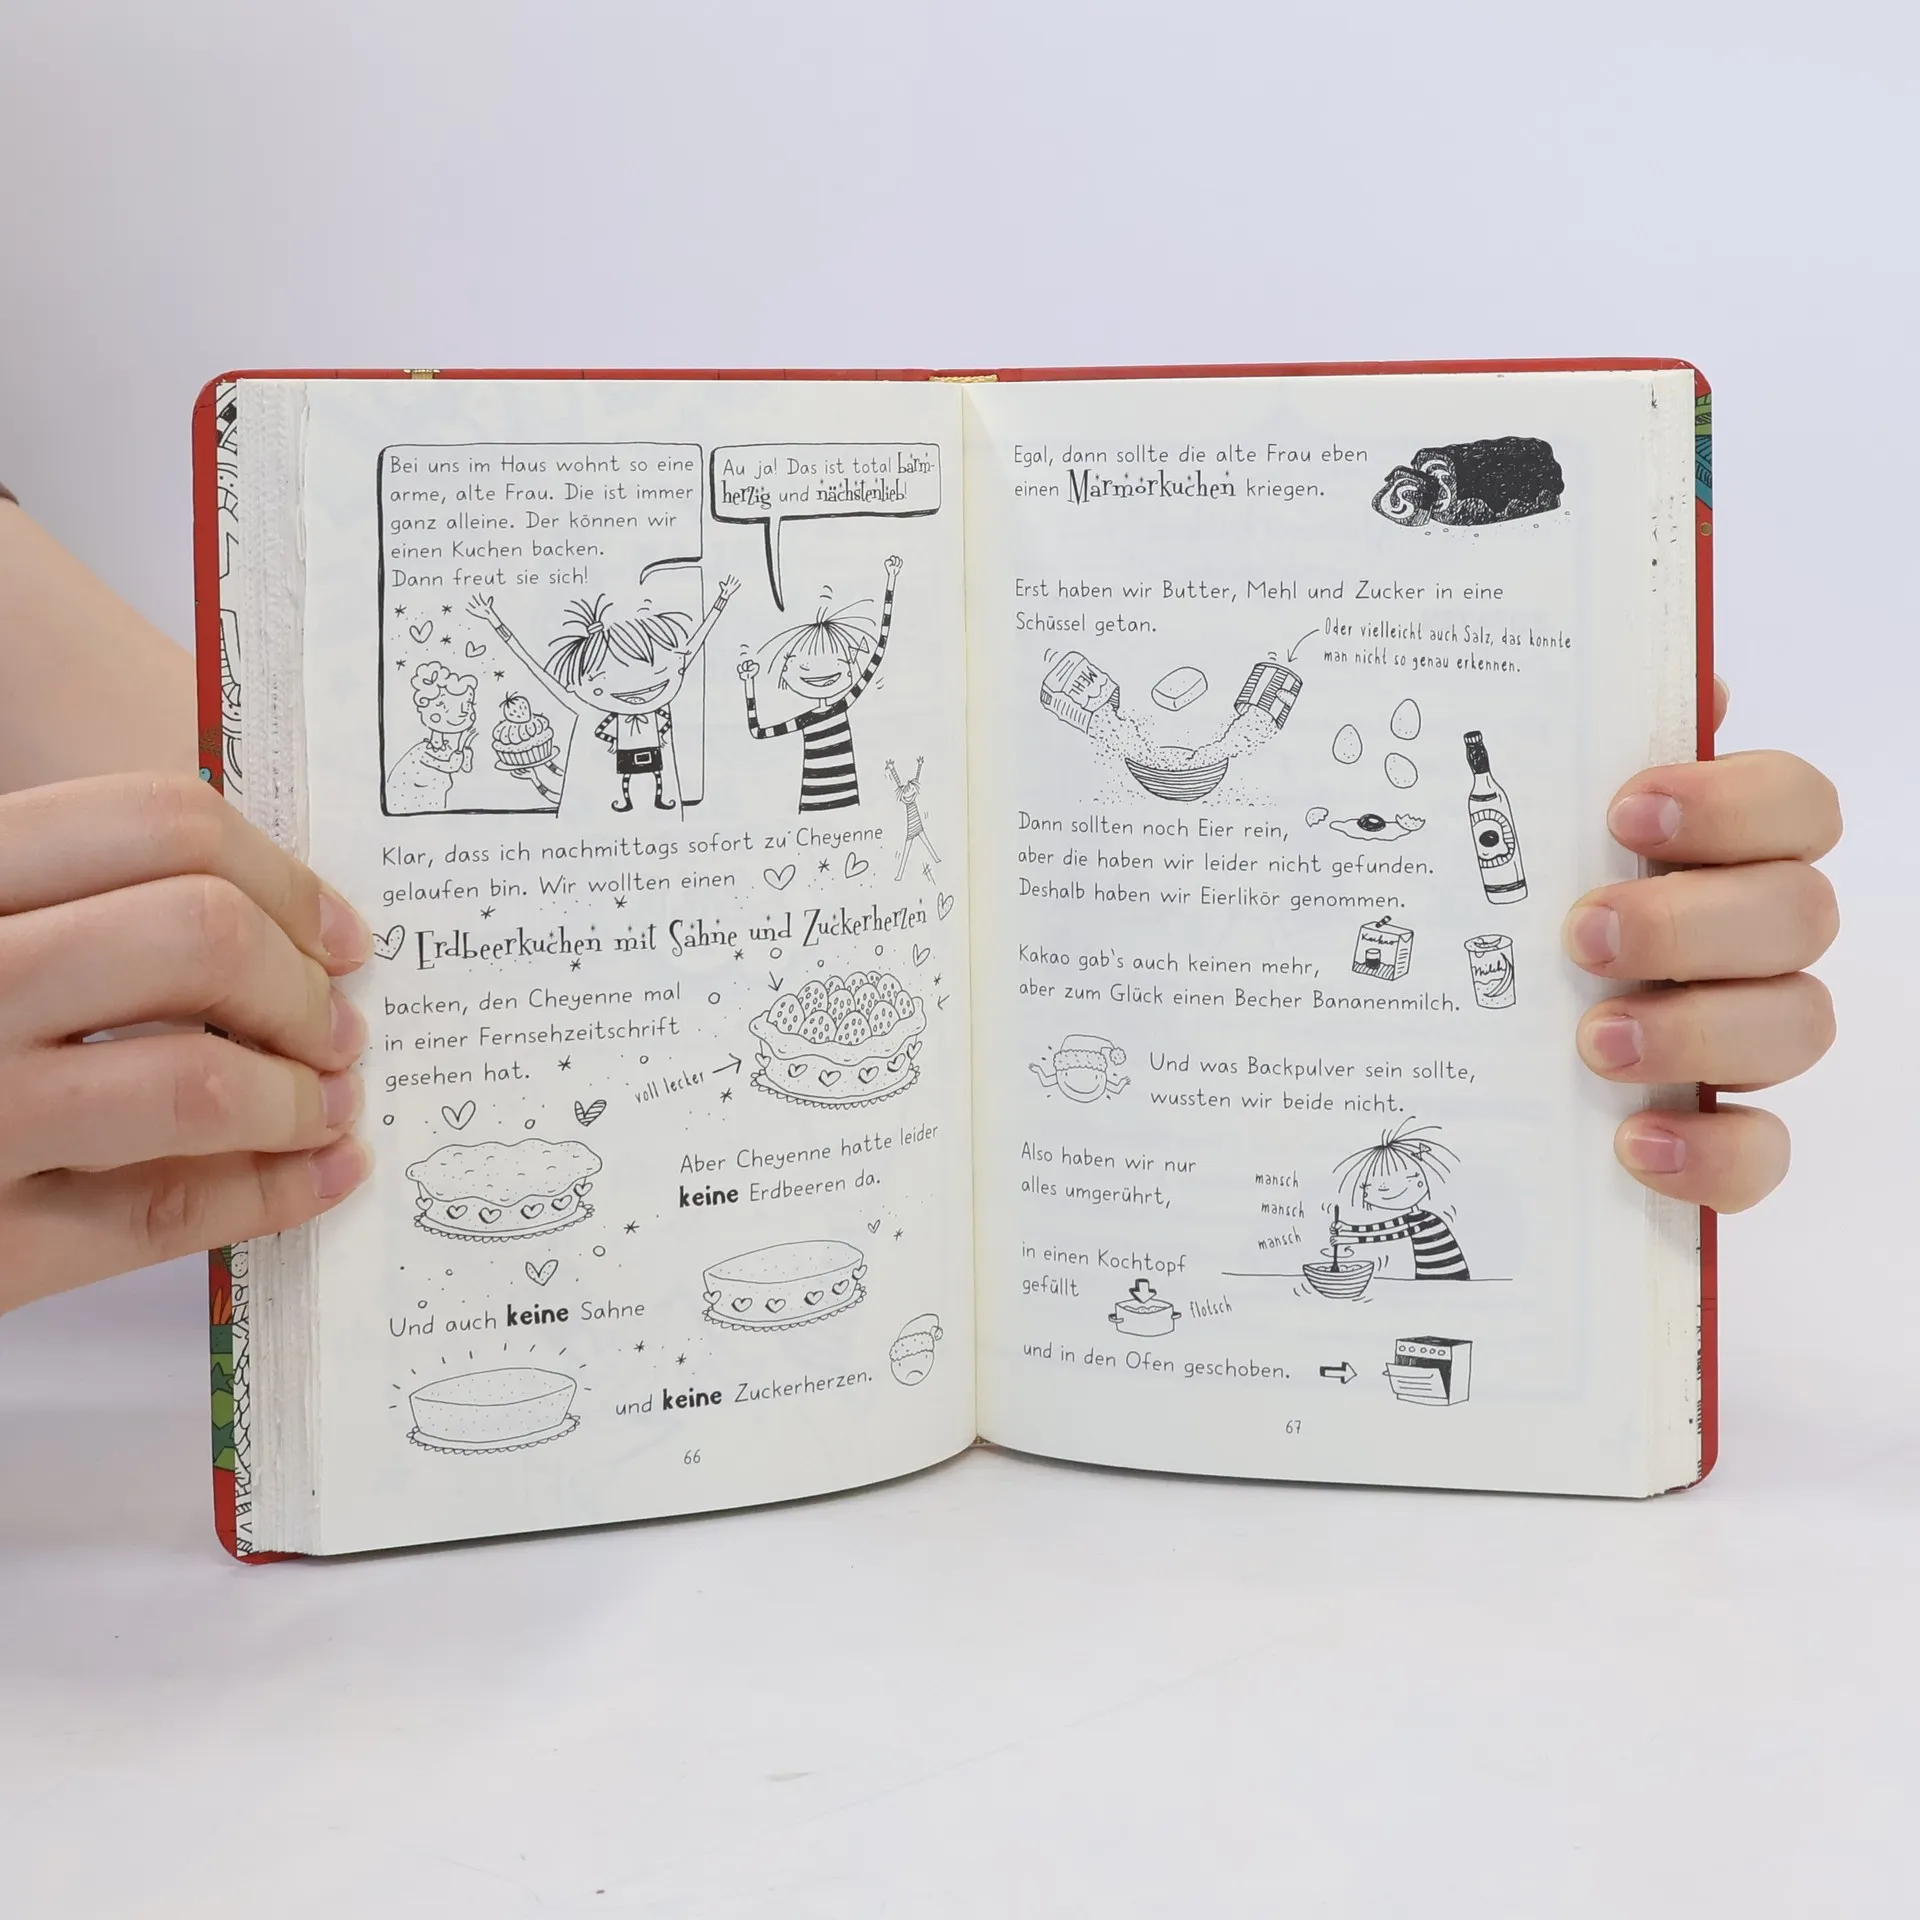 Bei uns im Haus wohnt so eine
arme, alte Frau. Die ist immer
ganz alleine. Der können wir
einen Kuchen backen.
Dann freut sie sich!
Au ja! Das ist total barm-
herzig und nächstenlieb!
Klar, dass ich nachmittags sofort zu Cheyenne
gelaufen bin. Wir wollten einen
Erdbeerkuchen mit Sahne und Zuckerherzen
backen, den Cheyenne mal
in einer Fernsehzeitschrift
gesehen hat.
voll lecker
Aber Cheyenne hatte leider
keine Erdbeeren da.
Und auch keine Sahne
und keine Zuckerherzen.
66
Egal, dann sollte die alte Frau eben
einen Marmorkuchen kriegen.
Erst haben wir Butter, Mehl und Zucker in eine
Schüssel getan.
Oder vielleicht auch Salz, das konnte
man nicht so genau erkennen.
MEHL
Dann sollten noch Eier rein,
aber die haben wir leider nicht gefunden.
Deshalb haben wir Eierlikör genommen.
Kakao
Milch
Kakao gab's auch keinen mehr,
aber zum Glück einen Becher Bananenmilch.
Und was Backpulver sein sollte,
wussten wir beide nicht.
Also haben wir nur
alles umgerührt,
mansch
mansch
mansch
in einen Kochtopf
gefüllt
flotsch
und in den Ofen geschoben.
67